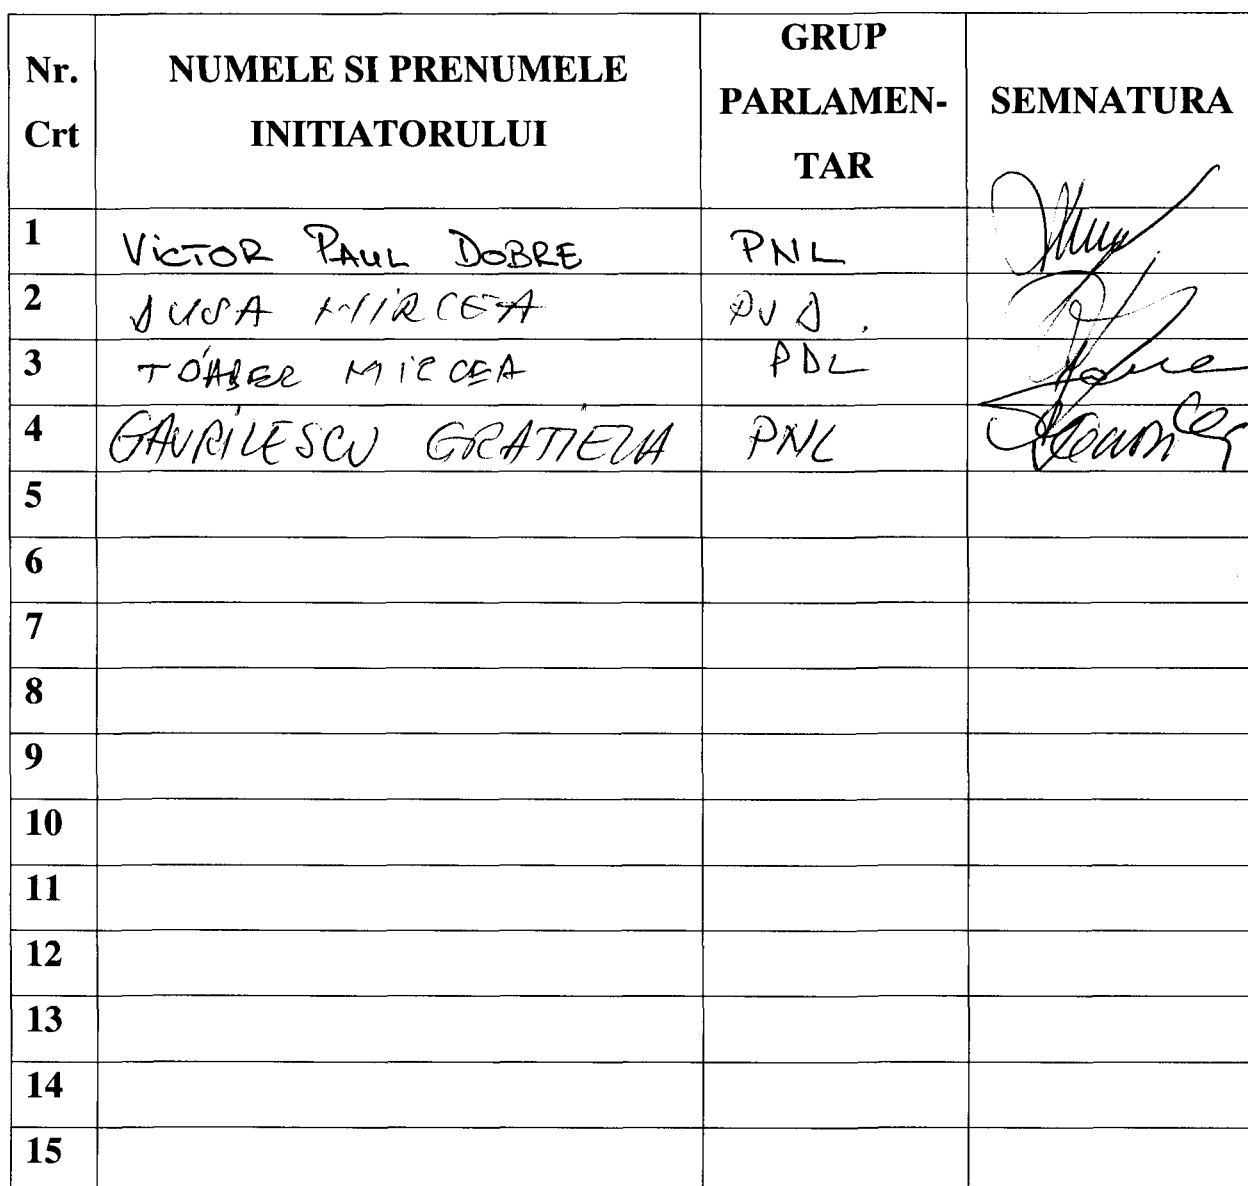 Nr. Crt NUMELE SI PRENUMELE INITIATORULUI GRUP PARLAMEN-TAR SEMNATURA
1 VICTOR PAUL DOBRE PNL
2 MIRCEA
3 TOADER MIRCEA PDL
4 GAVRILESCU GRATIELA PNL
5
6
7
8
9
10
11
12
13
14
15